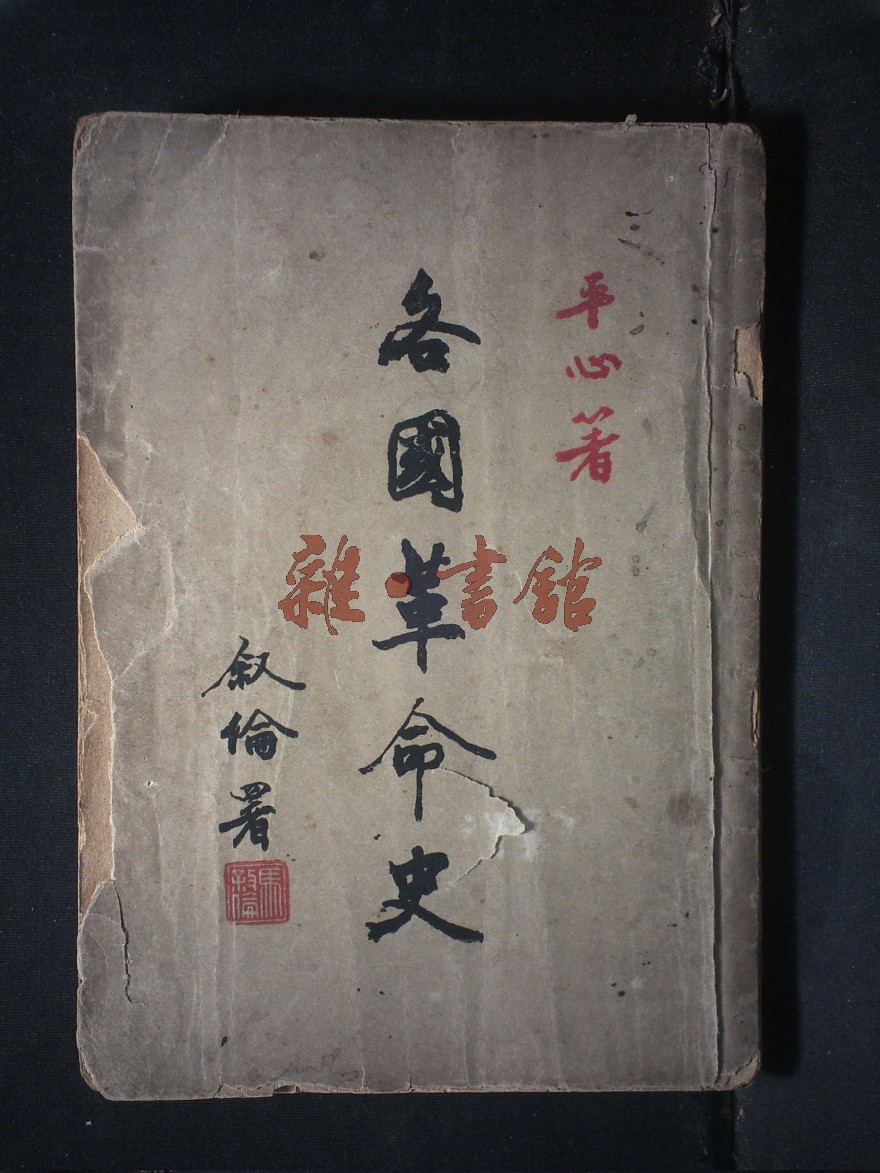 平心著
各國革命史
叙倫署
馬叙倫
雜·書館